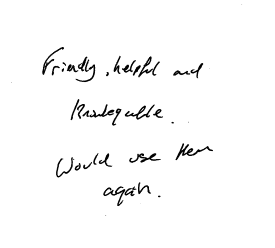 Friendly, helpful and
Knowlegable.
Would use them
again.